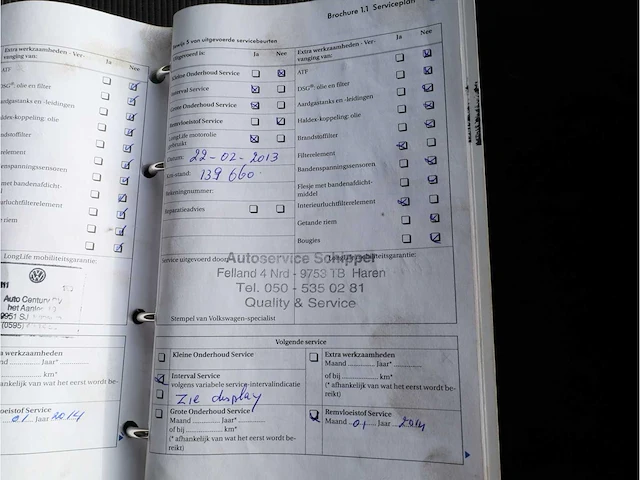 Brochure 1.1 Serviceplan
Extra werkzaamheden - Ver-
vanging van:
Ja
Nee
ATF
DSG®: olie en filter
Aardgastanks en -leidingen
Haldex-koppeling: olie
Brandstoffilter
Filterelement
Bandenspanningssensoren
Flesje met bandenafdicht-
middel
Interieurluchtfilterelement
Getande riem
Bougies
LongLife mobiliteitsgarantie:
Auto Century
het Aanleg
9951 SJ
(0595)
a werkzaamheden
Jaar*
km*
afhankelijk van wat het eerst wordt be-
loeistof Service
01 Jaar 2014
Bewijs 5 van uitgevoerde servicebeurten
Uitgevoerd is:
Ja
Nee
Kleine Onderhoud Service
Interval Service
Grote Onderhoud Service
Remvloeistof Service
LongLife motorolie
gebruikt
Datum: 22-02-2013
Km-stand: 139 660
Rekeningnummer:
Reparatieadvies
Extra werkzaamheden - Ver-
vanging van:
Ja
Nee
ATF
DSG®: olie en filter
Aardgastanks en -leidingen
Haldex-koppeling: olie
Brandstoffilter
Filterelement
Bandenspanningssensoren
Flesje met bandenafdicht-
middel
Interieurluchtfilterelement
Getande riem
Bougies
Service uitgevoerd door:
LongLife mobiliteitsgarantie:
Autoservice Schipper
Felland 4 Nrd - 9753 TB Haren
Tel. 050 - 535 02 81
Quality & Service
Stempel van Volkswagen-specialist
Volgende service
Kleine Onderhoud Service
Interval Service
volgens variabele service-intervalindicatie
Zie display
Grote Onderhoud Service
Maand ........ Jaar*
of bij ........ km*
(* afhankelijk van wat het eerst wordt be-
reikt)
Extra werkzaamheden
Maand ........ Jaar*
of bij ........ km*
(* afhankelijk van wat het eerst wordt
bereikt)
Remvloeistof Service
Maand 01 Jaar 2014